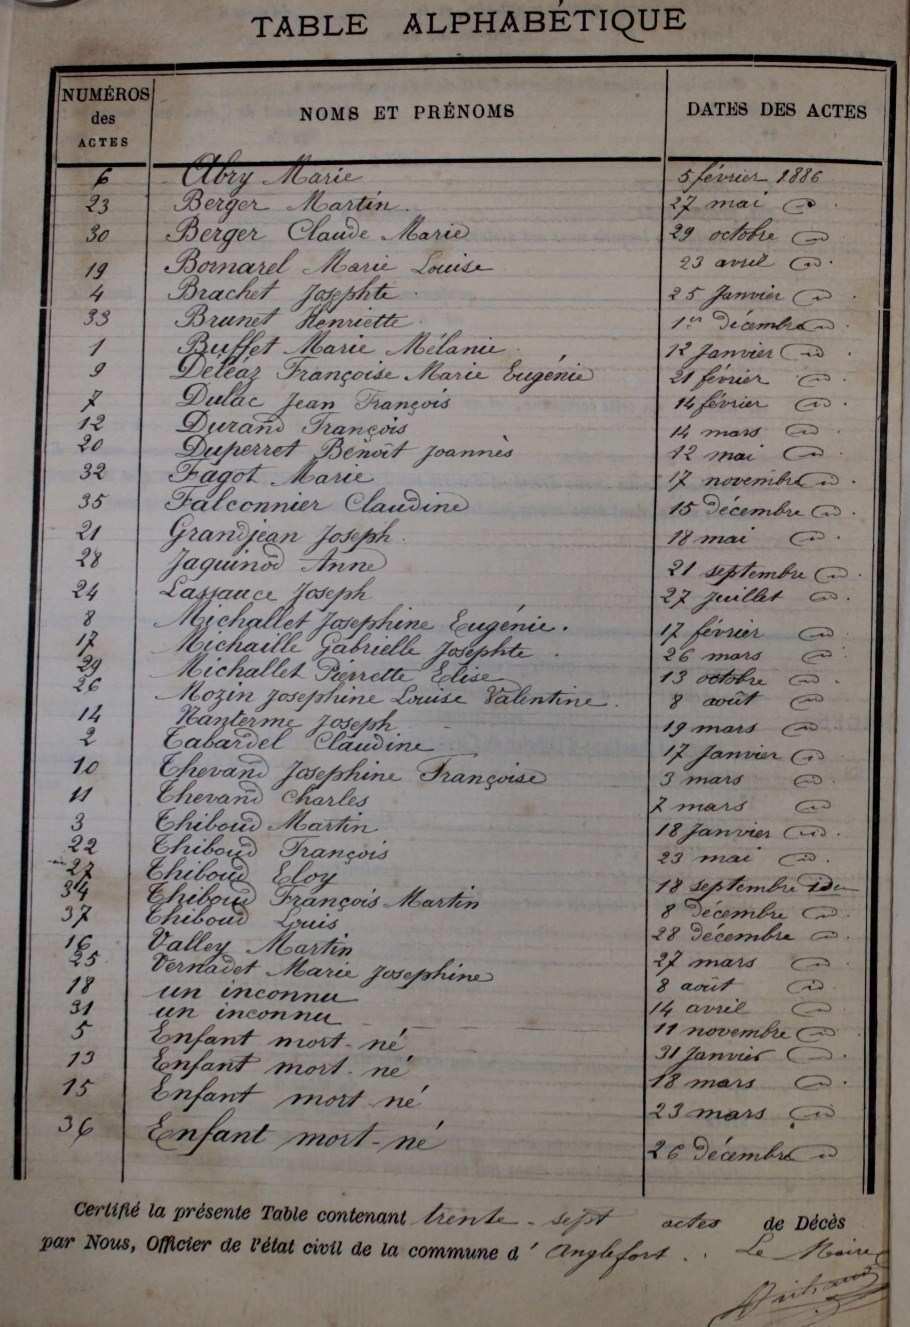 TABLE ALPHABÉTIQUE
NUMÉROS des ACTES NOMS ET PRÉNOMS DATES DES ACTES
6 Abry Marie 5 février 1886
23 Berger Martin. 27 mai
30 Berger Claude Marie 29 octobre
19 Bornarel Marie Louise 23 avril
4 Brachet Josephte 25 Janvier
33 Brunet Henriette 1er décembre
1 Buffet Marie Mélanie 12 Janvier
9 Déléaz Françoise Marie Eugénie 21 février
7 Dulac Jean François 14 février
12 Durand François 14 mars
20 Duperret Benoît Joannès 12 mai
32 Fagot Marie 17 novembre
35 Falconnier Claudine 15 décembre
21 Grandjean Joseph. 18 mai
28 Jaquinod Anne 21 septembre
24 Lassauce Joseph 27 Juillet
8 Michallet Josephine Eugénie. 17 février
17 Michaille Gabrielle Josephte. 26 mars
29 Michallet Pierrette Elise 13 octobre
26 Mozin Josephine Louise Valentine. 8 août
14 Nanterme Joseph 19 mars
2 Tabardel Claudine 17 Janvier
10 Thevand Josephine Françoise 3 mars
11 Thevand Charles 7 mars
3 Thiboud Martin 18 Janvier
22 Thiboud François 23 mai
27 Thiboud Eloy 18 septembre
34 Thiboud François Martin 8 décembre
37 Thiboud Louis 28 décembre
16 Valley Martin 27 mars
25 Vernadet Marie Josephine 8 août
18 un inconnu 14 avril
31 un inconnu 11 novembre
5 Enfant mort-né 31 Janvier
13 Enfant mort-né 18 mars
15 Enfant mort-né 23 mars
36 Enfant mort-né 26 décembre
Certifié la présente Table contenant trente-sept actes de Décès
par Nous, Officier de l'état civil de la commune d'Anglefort. Le Maire